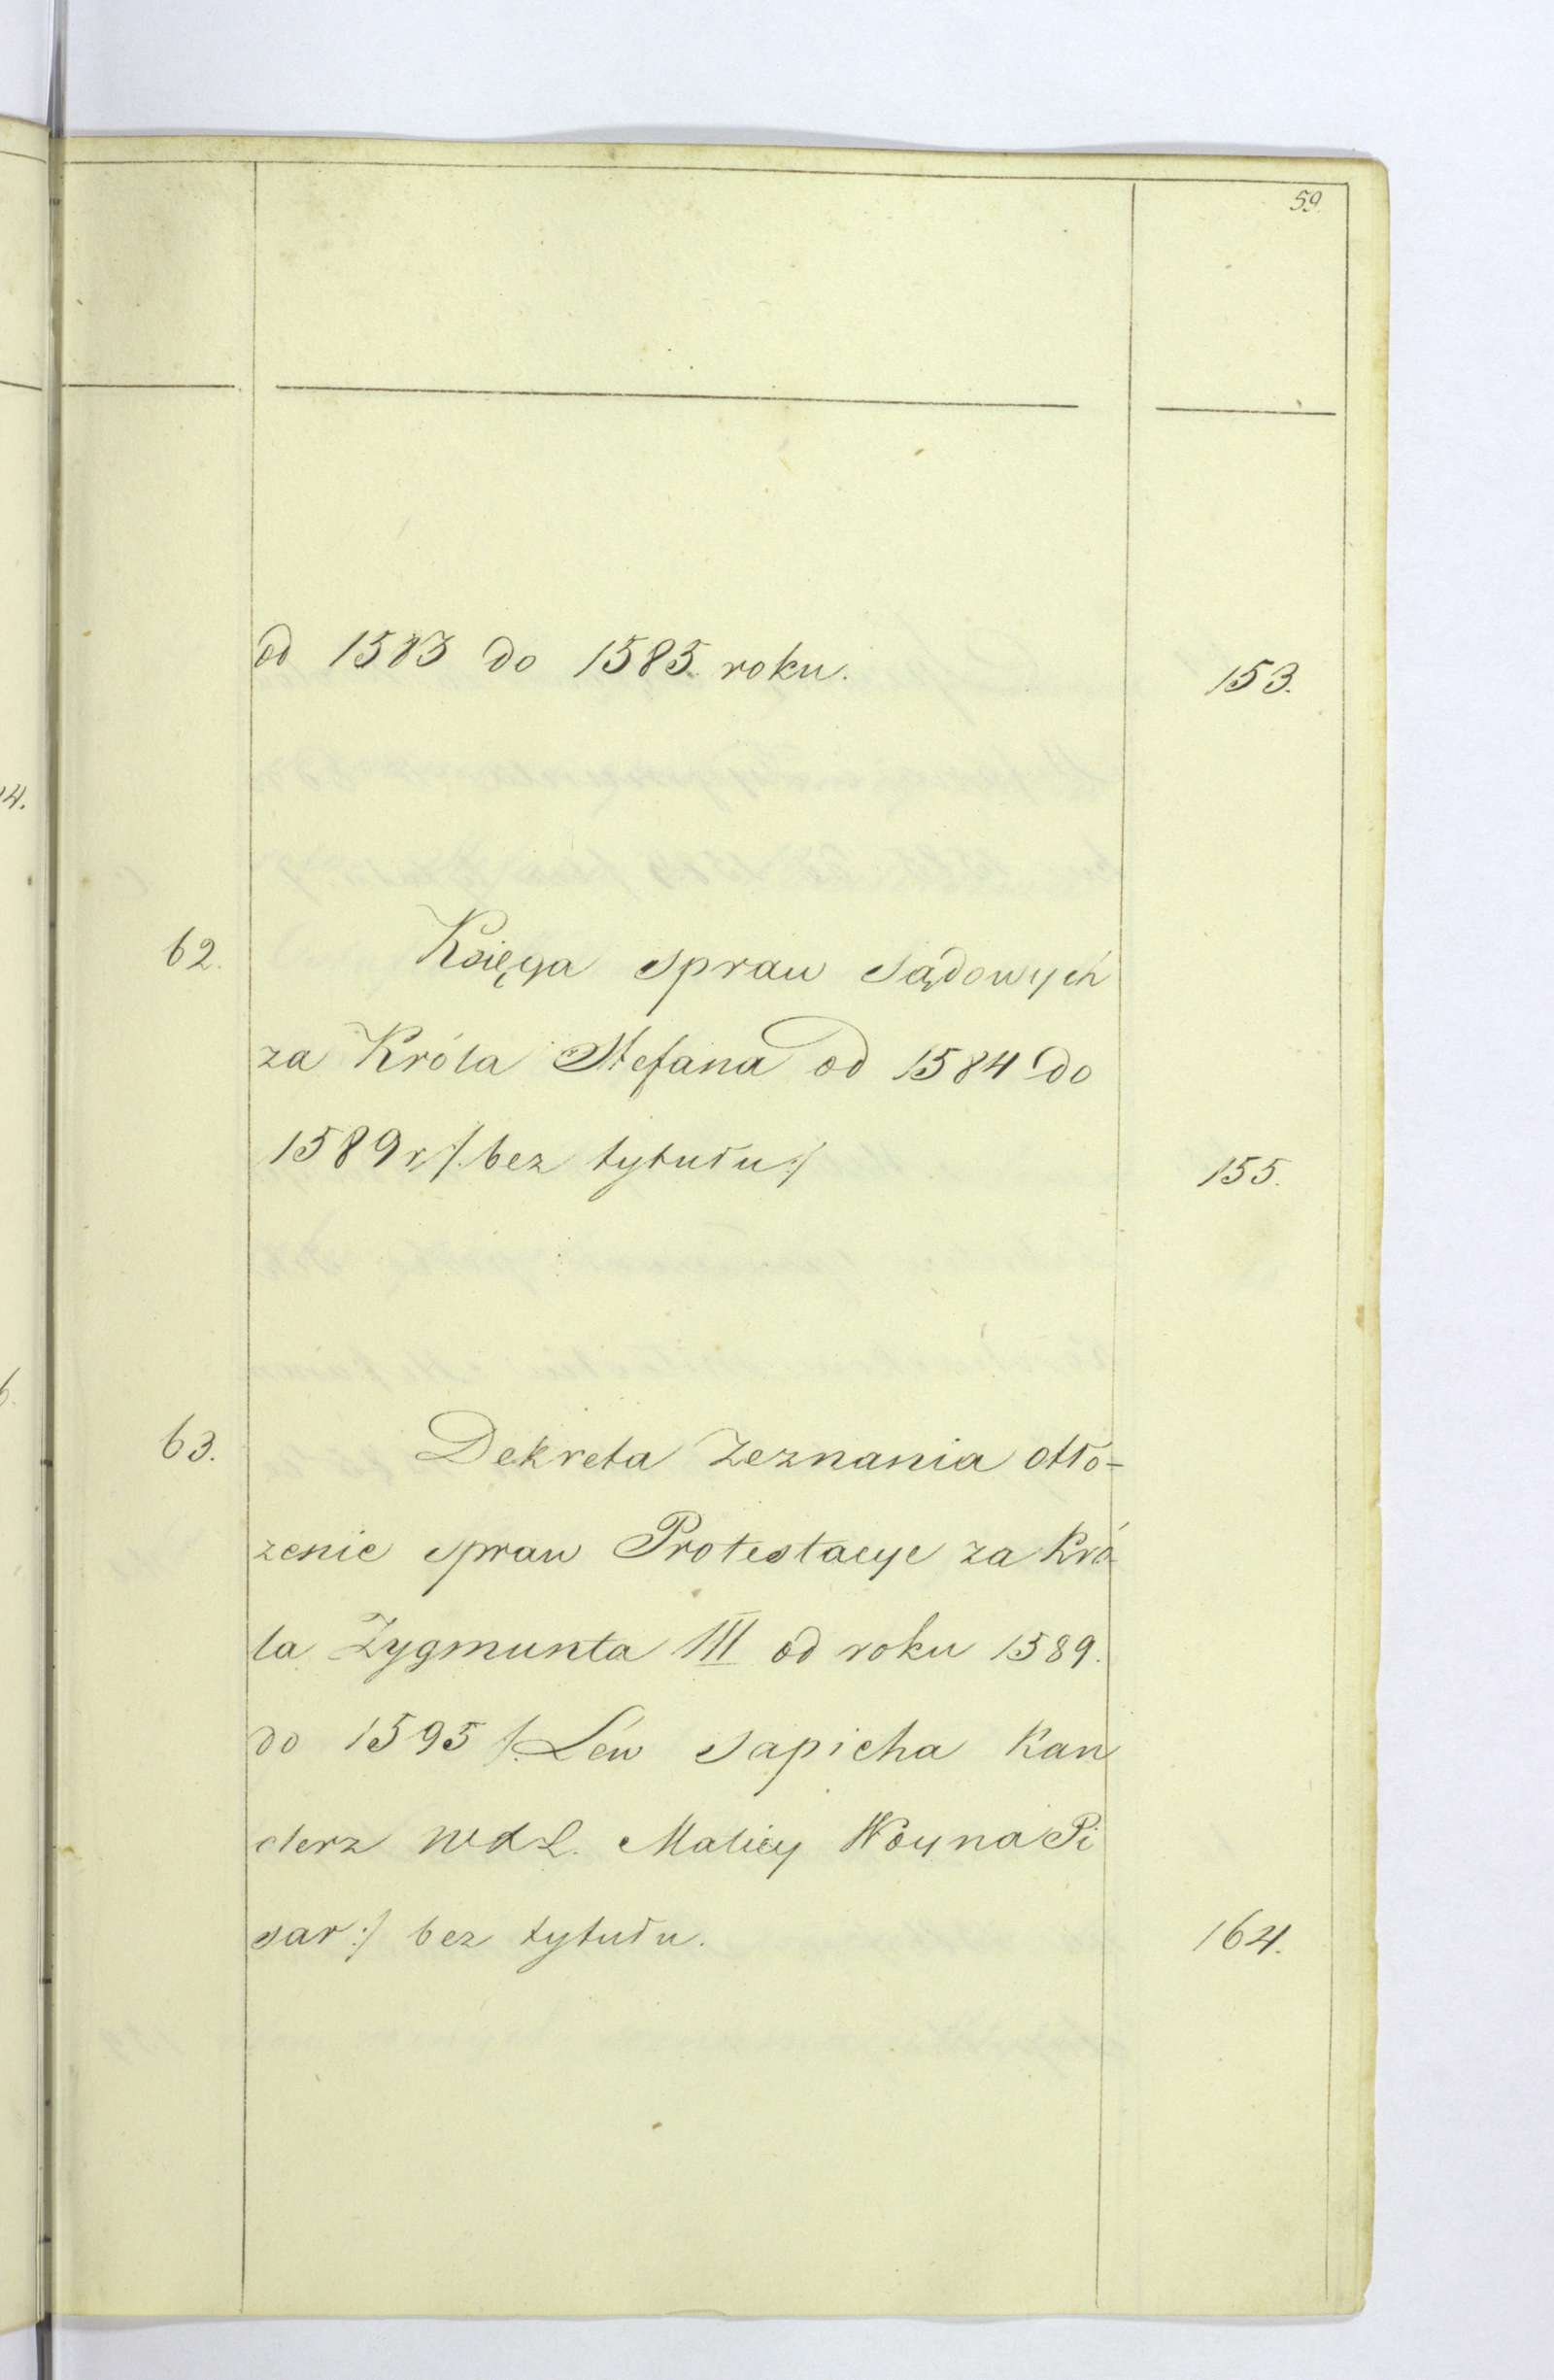 59.
od 1583 do 1585. roku. 153.
62. Księga spraw sądowych
za Króla Stefana od 1584 do
1589 r /: bez tytułu :/ 155.
63. Dekreta Zeznania otło-
zenie spraw Protestacye za Kró
la Zygmunta III od roku 1589.
do 1595 /: Lew Sapieha Kan
clerz WXL. Maciey Woyna Pi
sar :/ bez tytułu. 164.